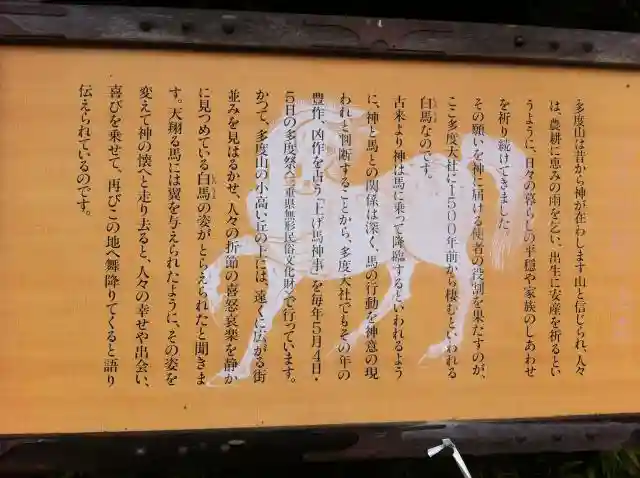 多度山は昔から神が在わします山と信じられ、人々
は、農耕に恵みの雨を乞い、出生に安産を祈るとい
うように、日々の暮らしの平穏や家族のしあわせ
を祈り続けてきました
その願いを神に届ける使者の役割を果たすのが、
ここ多度大社に1500年前から棲むといわれる
白馬なのです。
古来より神は馬に乗って降臨するといわれるよう
に、神と馬との関係は深く、馬の行動を神意の現
われと判断することから、多度大社でもその年の
豊作、凶作を占う「上げ馬神事」を毎年5月4日・
5日の多度祭〈三重県無形民俗文化財〉で行っています。
かつて、多度山の小高い丘の上には、遠くに広がる街
並みを見はるかせ、人々の折節の喜怒哀楽を静か
に見つめている白馬の姿がとらえられたと聞きま
す。天翔る馬には翼を与えられたように、その姿を
変えて神の懐へと走り去ると、人々の幸せや出会い、
喜びを乗せて、再びこの地へ舞降りてくると語り
伝えられているのです。